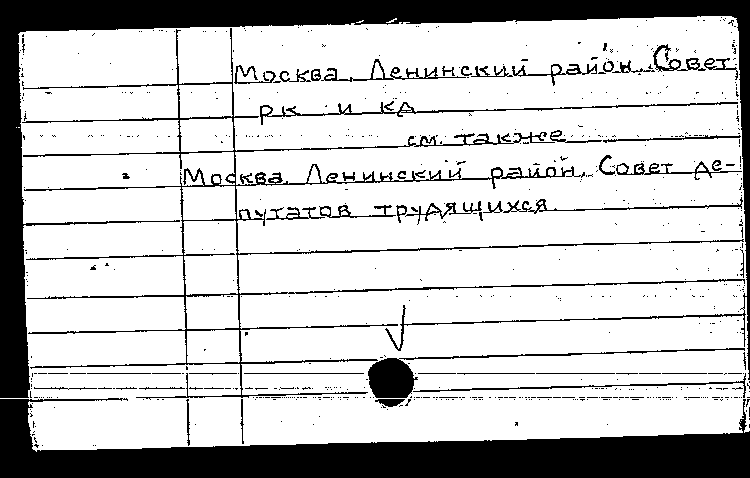 Москва. Ленинский район. Совет
рк и кд
см. также
Москва. Ленинский район. Совет де-
путатов трудящихся.